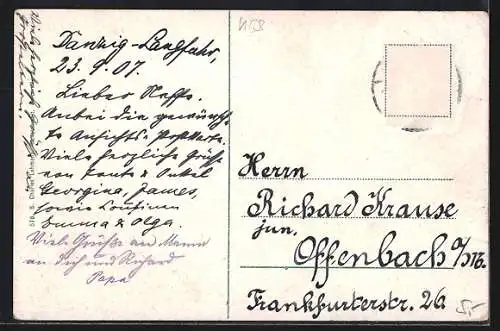 Danzig-Langfuhr,
23.9.07.
Lieber Neffe.
Anbei die gewünsch-
te Ansichts-Postkarte.
Viele herzliche Grüße
von Tante & Onkel
Georgina, James,
sowie Cousinen
Emma & Olga.
Viele Grüße an Mama
an dich und Richard
Papa
Herrn
Richard Krause
jun.
Offenbach a/M.
Frankfurterstr. 26